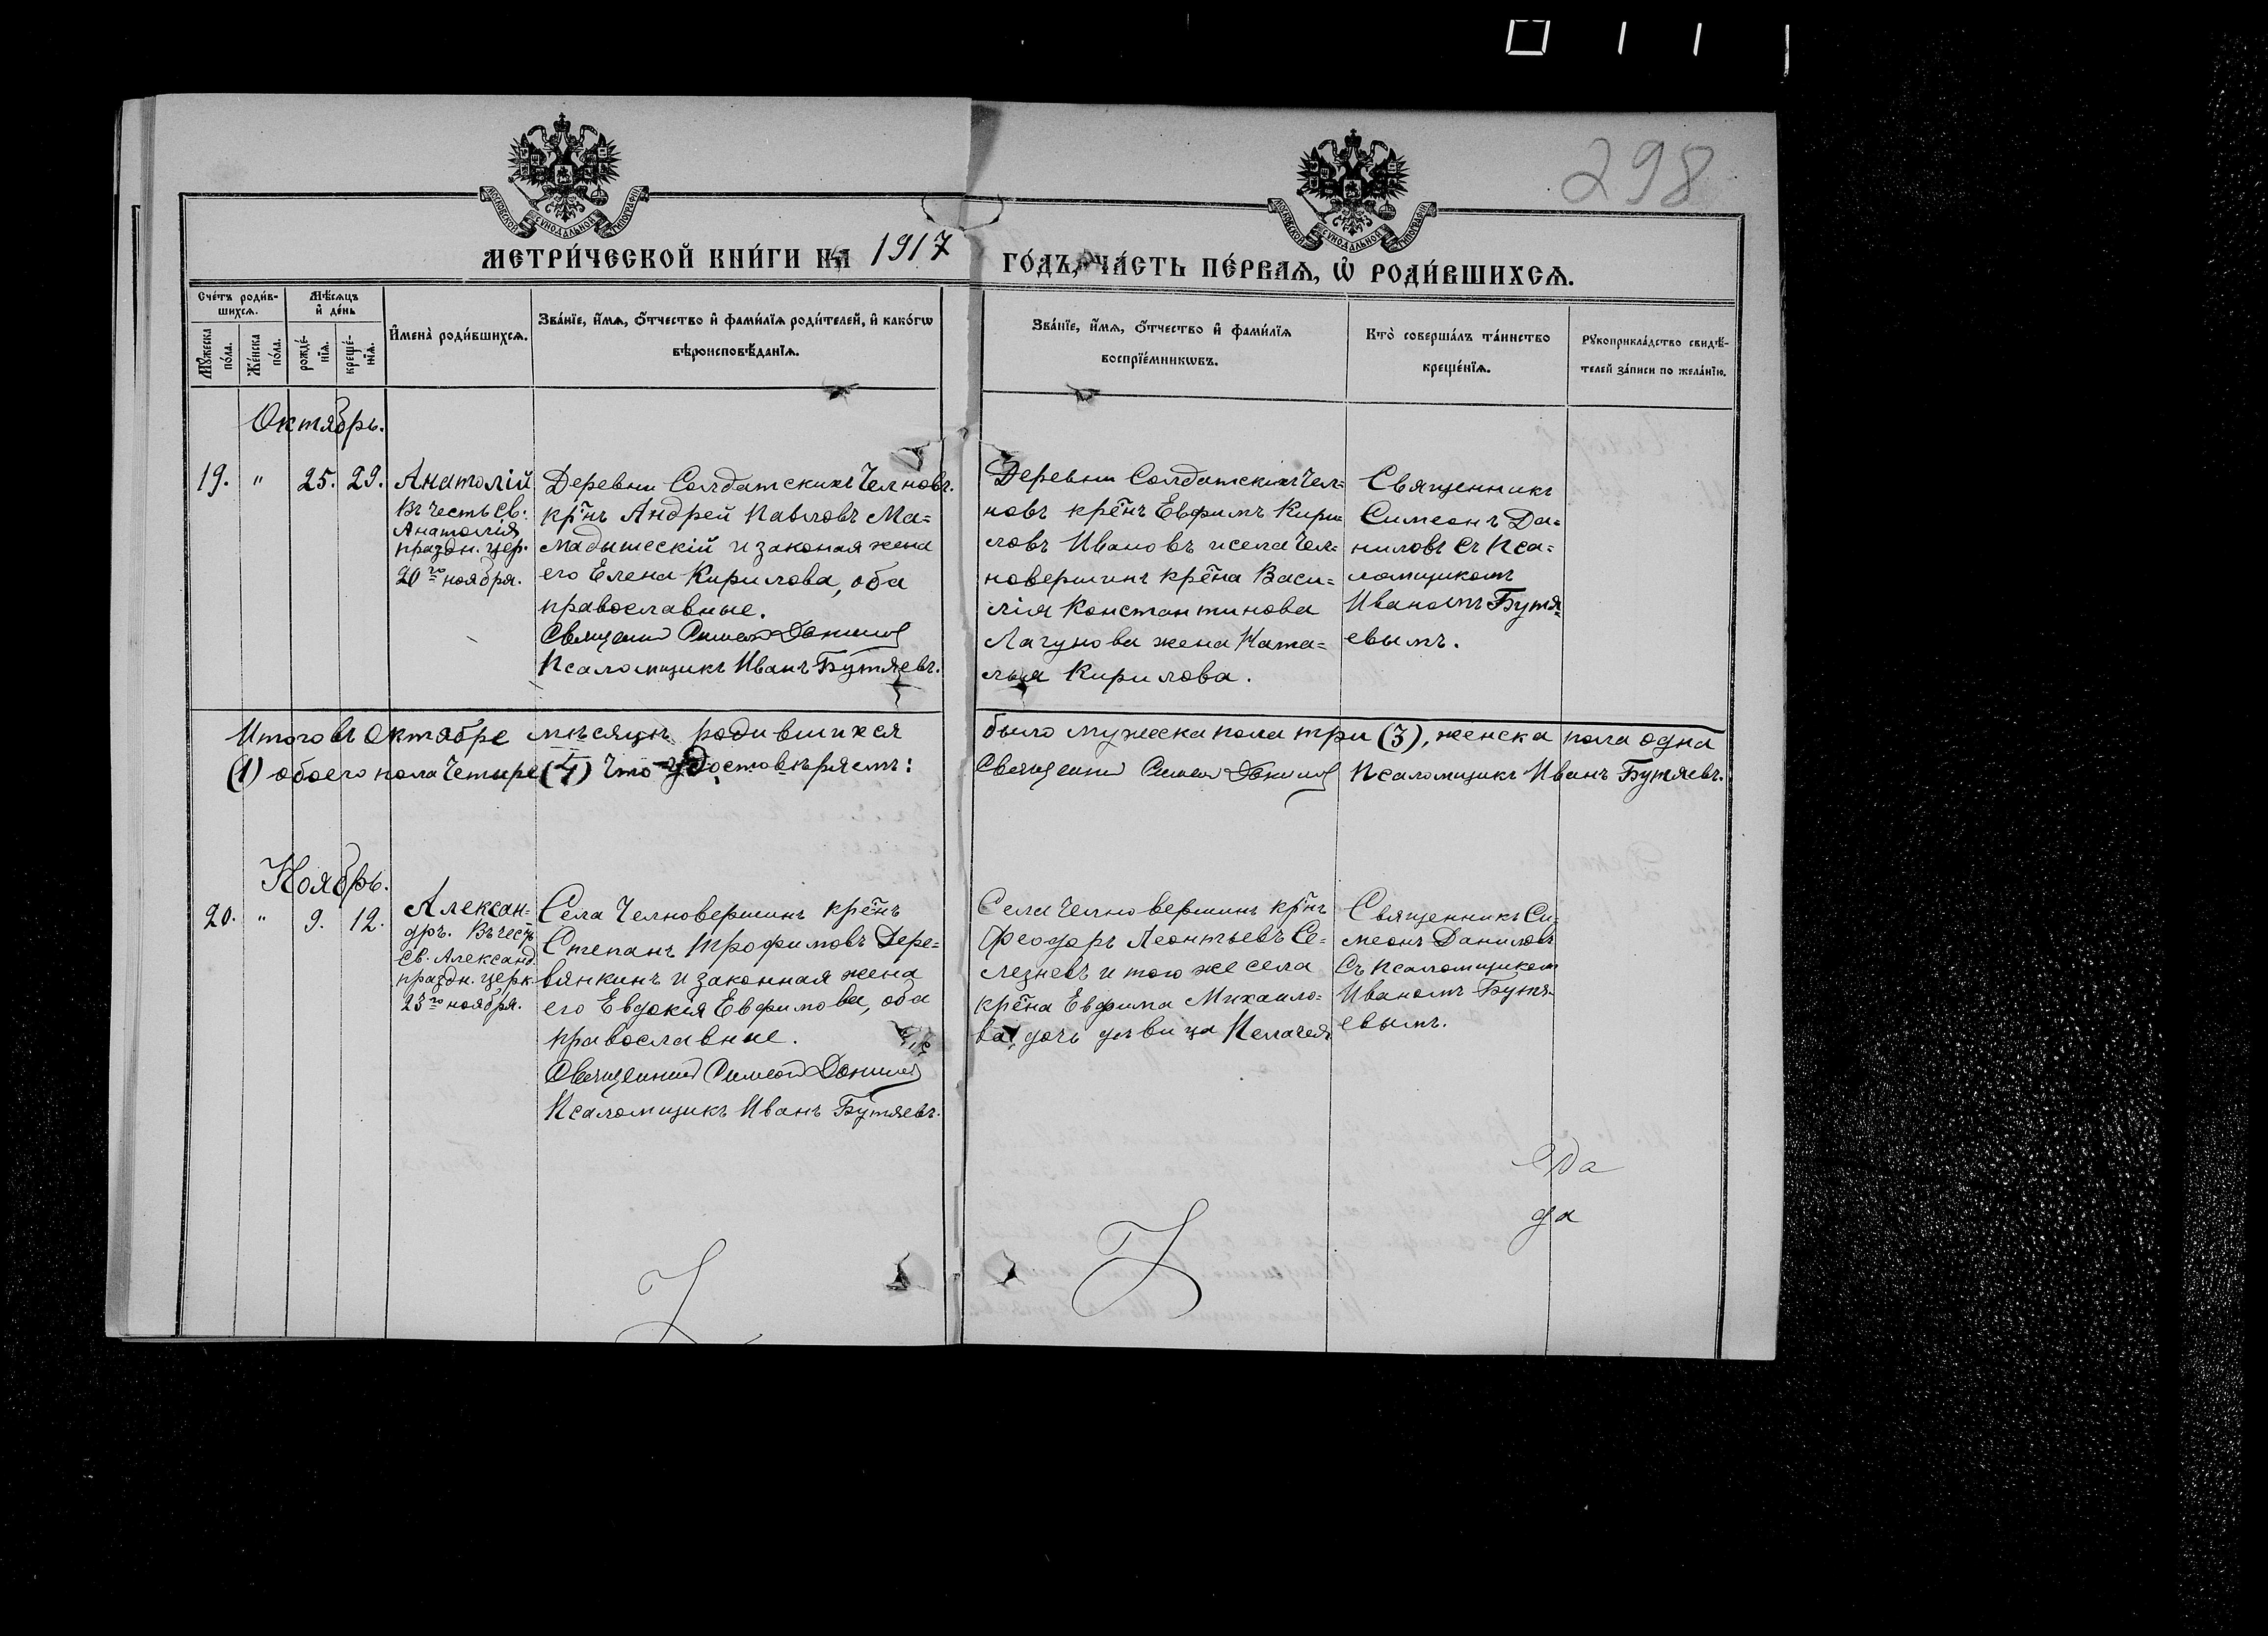 298
МЕТРИ́ЧЕСКОЙ КНИ́ГИ НА 1917 ГО́ДЪ, ЧА́СТЬ ПЕ́РВАѦ, Ѡ҆ РОДИ́ВШИХСѦ.
Сче́тъ роди́в-
шихсѧ.
Мꙋ́жеска
по́ла.
Же́нска
по́ла.
Мѣ́сѧцъ
и҆ де́нь
рожде́-
нїѧ.
креще́-
нїѧ.
И҆мена̀ роди́вшихсѧ.
Зва́нїе, и҆́мѧ, ѻ҆́тчество и҆ фами́лїѧ роди́телей, и҆ како́гѡ
вѣроисповѣ́данїѧ.
Зва́нїе, и҆́мѧ, ѻ҆́тчество и҆ фами́лїѧ
воспрїе́мникѡвъ.
Кто̀ соверша́лъ та́инство
креще́нїѧ.
Рꙋкоприкла́дство свидѣ́-
телей за́писи по жела́нїю.
Октябрь.
19. " 25. 29.
Анатолій
Въ честь св.
Анатолія
праздн. цер.
20го ноября.
Деревни Солдатскихъ Челновъ.
кр̃нъ Андрей Павловъ Ма=
мадышескій и законая жена
его Елена Кирилова, оба
православные.
Священник Симеон Данилов
Псаломщикъ Иванъ Бутяевъ.
Деревни Солдатскихъ Чел=
новъ крẽнъ Евфимъ Кири=
ловъ Ивановъ и села Чел=
новершинъ крẽна Васи=
лія Константинова
Лагунова жена Ната=
лья Кирилова.
Священникъ
Симеонъ Да=
ниловъ съ Пса=
ломщикомъ
Иваномъ Бутя=
евымъ.
Итого въ Октябре мѣсяцѣ родившихся было мужеска пола три (3), женска пола одна
(1) обоего пола Четыре (4) Что удостовѣряемъ: Священник Симеон Данилов Псаломщикъ Иванъ Бутяевъ.
Ноябрь.
20. " 9. 12.
Алексан=
дръ. Въ честь
Св. Александ.
праздн. церк.
23го ноября.
Села Челновершинъ крẽнъ
Степанъ Трофимовъ Дере=
вянкинъ и законная жена
его Евдокія Евфимова, оба
православные.
Священник Симеон Данилов
Псаломщикъ Иванъ Бутяевъ.
Села Челновершинъ кр̃нъ
Феодоръ Леонтьевъ Се=
лезневъ и того же села
крẽна Евфима Михаило=
ва, дочь дѣвица Пелагея
Священникъ Си=
меонъ Даниловъ
Съ псаломщиком
Иваномъ Бутя=
евымъ.
Да
да